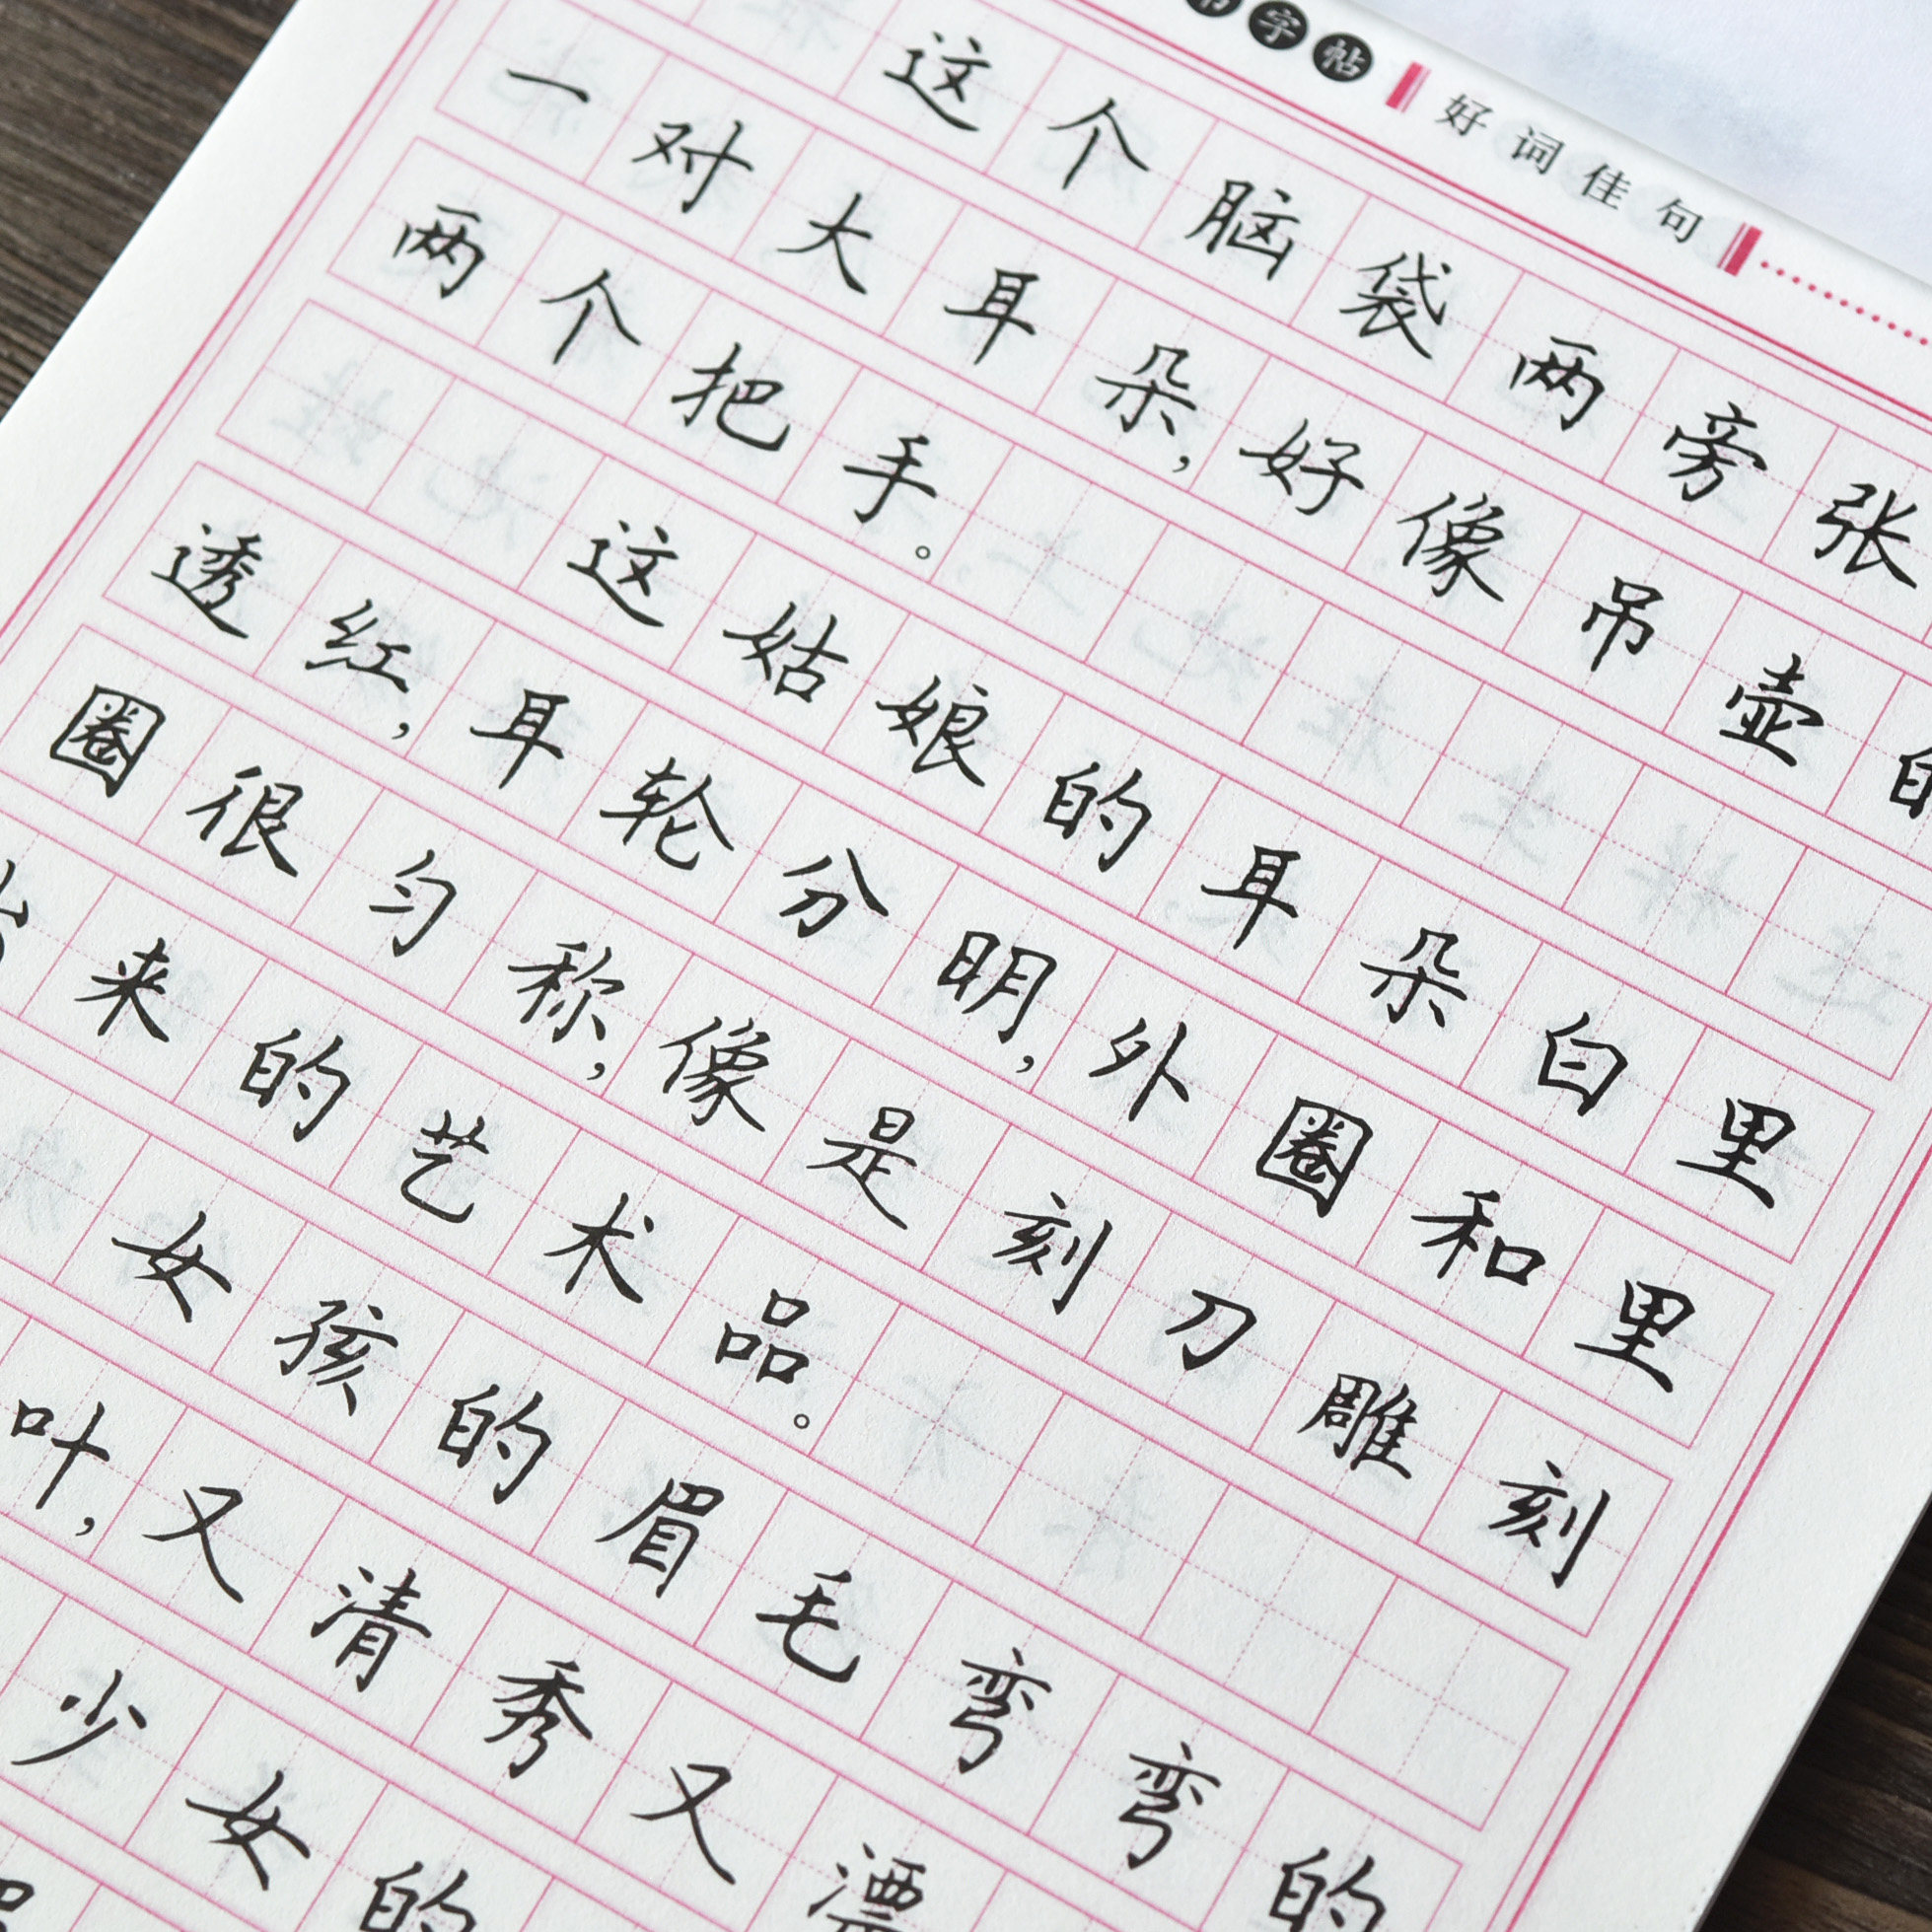 字帖 好词佳句
这个脑袋两旁张
一对大耳朵,好像吊壶的
两个把手。
这姑娘的耳朵白里
透红,耳轮分明,外圈和里
圈很匀称,像是刻刀雕刻
来的艺术品。
女孩的眉毛弯弯的
叶,又清秀又漂
少女的